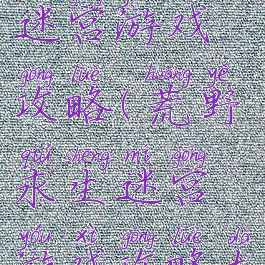 迷宫游戏
gōng lüè huāng yě
攻略(荒野
qiú shēng mí gōng
求生迷宫
yóu xì gōng lüè dà
游戏攻略大